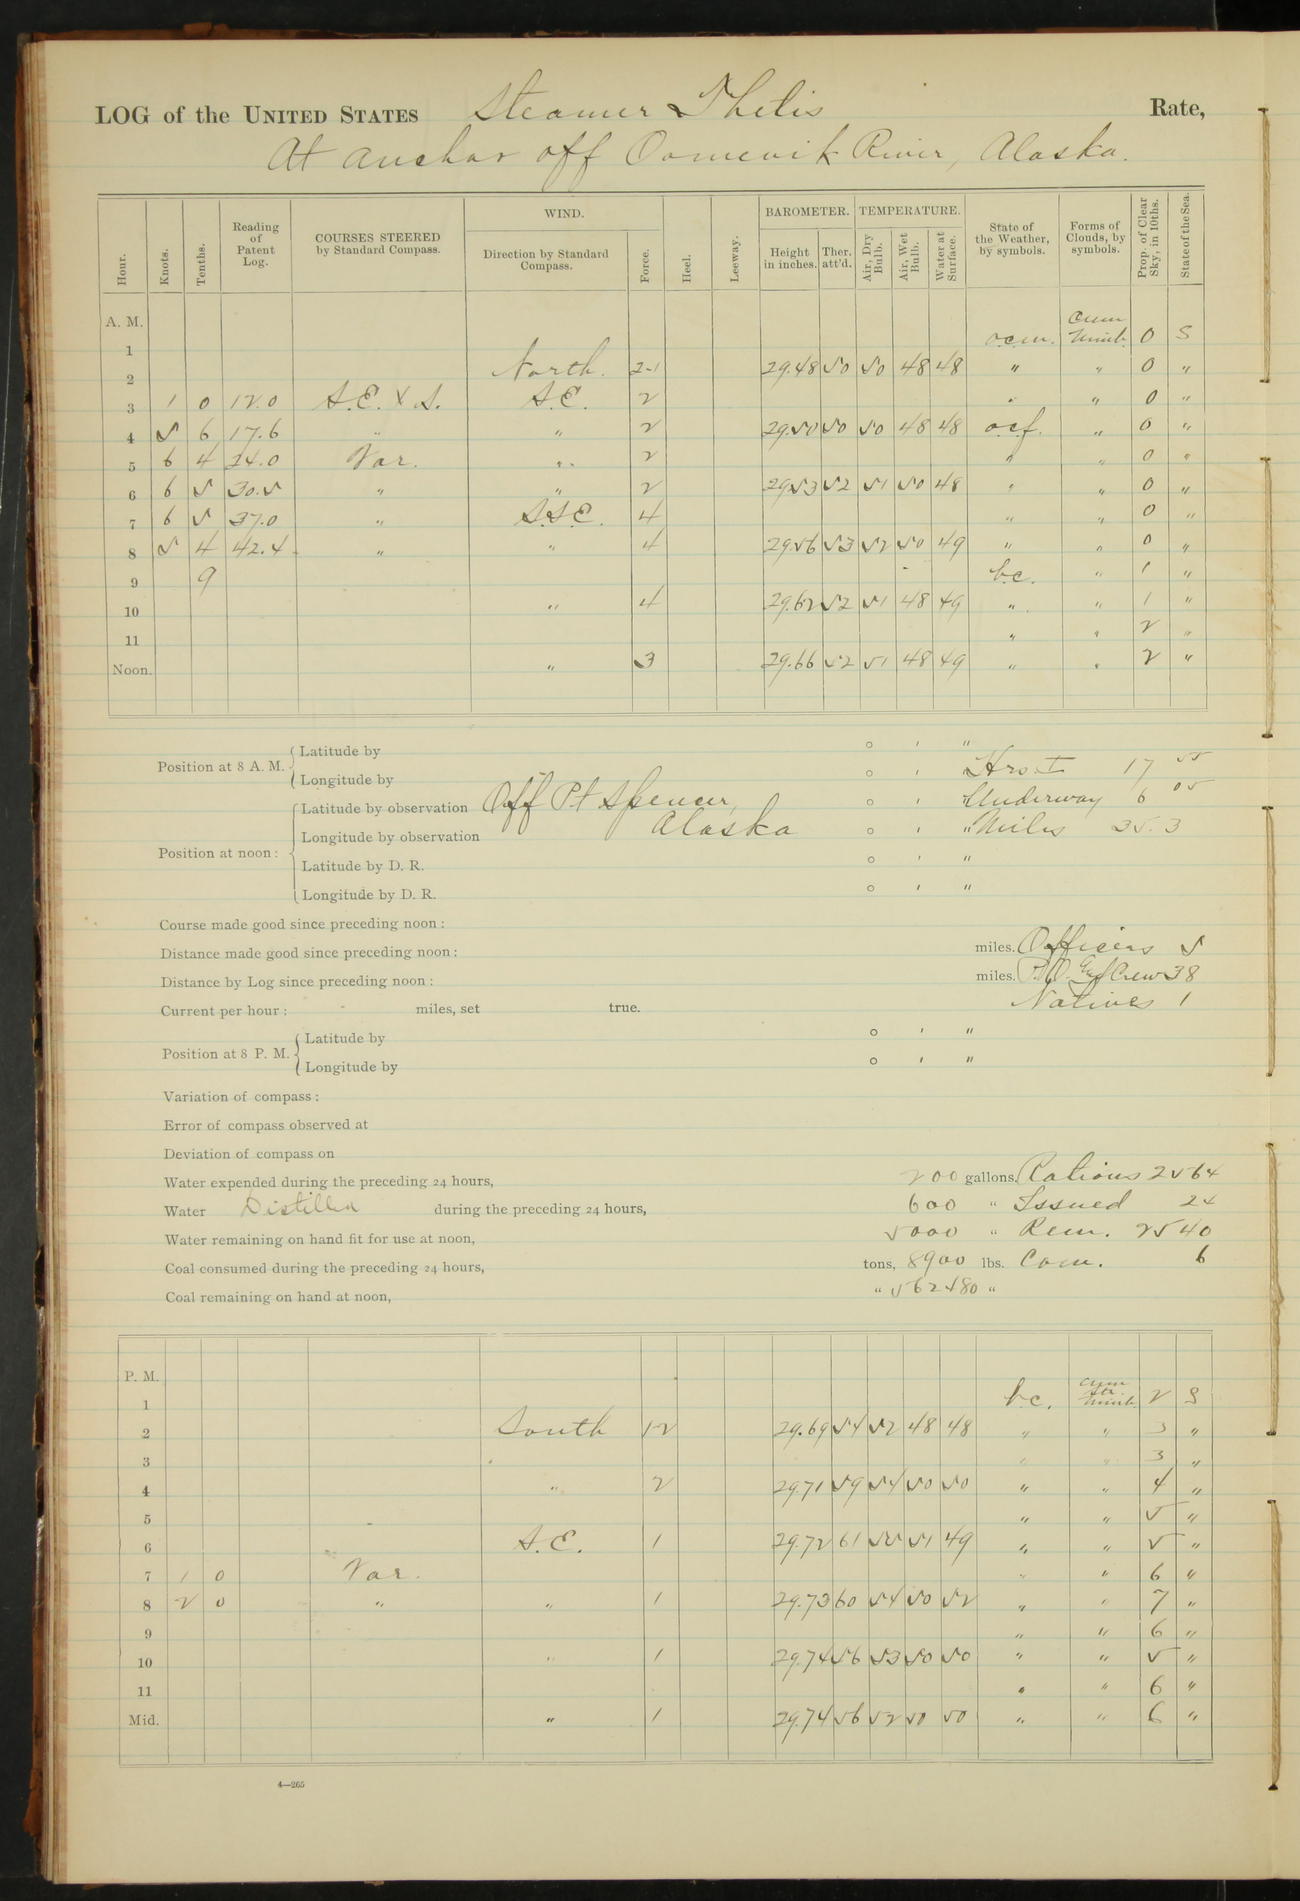 LOG of the UNITED STATES Steamer Thetis Rate,
At anchor off Oomevik River, Alaska.
Hour. Knots. Tenths. Reading of Patent Log. COURSES STEERED by Standard Compass. WIND. Direction by Standard Compass. Force. Heel. Leeway. BAROMETER. Height in inches. Ther. att'd. TEMPERATURE. Air, Dry Bulb. Air, Wet Bulb. Water at Surface. State of the Weather, by symbols. Forms of Clouds, by symbols. Prop. of Clear Sky, in 10ths. State of the Sea.
A. M.
1 o.c.m. Cum Nimb. 0 S
2 North. 2-1 29.48 50 50 48 48 " " 0 "
3 1 0 12.0 S.E. x S. S.E. 2 " " 0 "
4 5 6 17.6 " " 2 29.50 50 50 48 48 o.c.f. " 0 "
5 6 4 24.0 Var. " 2 " " 0 "
6 6 5 30.5 " " 2 29.53 52 51 50 48 " " 0 "
7 6 5 37.0 " S.S.E. 4 " " 0 "
8 5 4 42.4 " " 4 29.56 53 52 50 49 " " 0 "
9 9 b.c. " 1 "
10 " 4 29.62 52 51 48 49 " " 1 "
11 " " 2 "
Noon. " 3 29.66 52 51 48 49 " " 2 "
Position at 8 A. M. Latitude by ° ' "
Longitude by ° ' " Hrs I 17 55
Position at noon: Latitude by observation Off Pt Spencer, ° ' " Underway 6 05
Longitude by observation Alaska ° ' " Miles 35.3
Latitude by D. R. ° ' "
Longitude by D. R. ° ' "
Course made good since preceding noon:
Distance made good since preceding noon: miles. Officers 5
Distance by Log since preceding noon: miles. Crew 38
Current per hour: miles, set true. Natives 1
Position at 8 P. M. Latitude by ° ' "
Longitude by ° ' "
Variation of compass:
Error of compass observed at
Deviation of compass on
Water expended during the preceding 24 hours, 200 gallons. Rations 2564
Water Distilled during the preceding 24 hours, 600 " Issued 24
Water remaining on hand fit for use at noon, 5000 " Rem. 2540
Coal consumed during the preceding 24 hours, tons, 8900 lbs. Com. 6
Coal remaining on hand at noon, " 562480 "
P. M.
1 b.c. cum str. nimb. 2 S
2 South 1-2 29.69 54 52 48 48 " " 3 "
3 " " 3 "
4 " 2 29.71 59 54 50 50 " " 4 "
5 " " 5 "
6 S.E. 1 29.72 61 55 51 49 " " 5 "
7 1 0 Var. " " 6 "
8 2 0 " " 1 29.73 60 54 50 52 " " 7 "
9 " " 6 "
10 " 1 29.74 56 53 50 50 " " 5 "
11 " " 6 "
Mid. " 1 29.74 56 52 50 50 " " 6 "
4—265